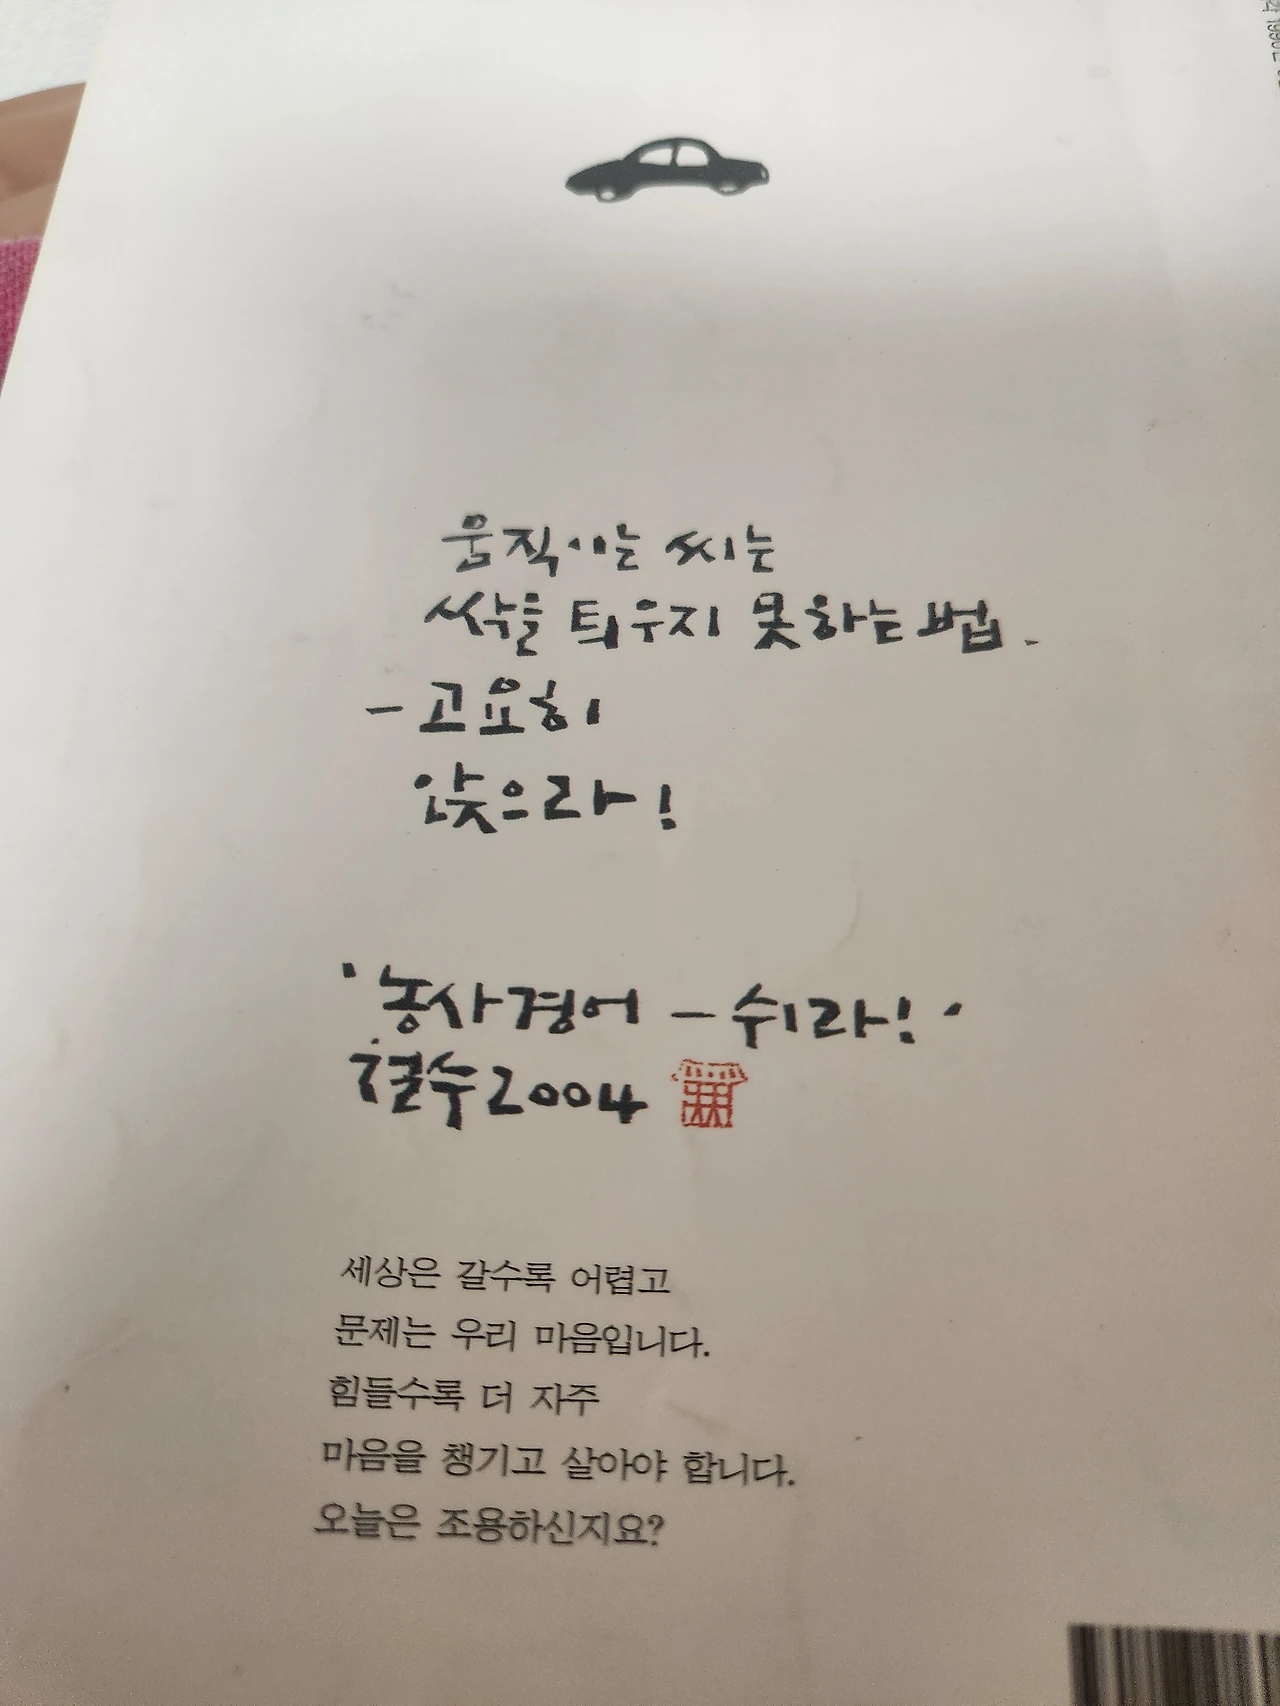 움직이는 씨는
싹을 틔우지 못하는 법.
- 고요히
앉으라!
'농사경어 - 쉬라!'
철수 2004
세상은 갈수록 어렵고
문제는 우리 마음입니다.
힘들수록 더 자주
마음을 챙기고 살아야 합니다.
오늘은 조용하신지요?